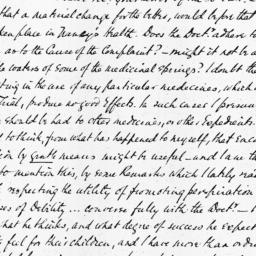 that a material change for the better, would before that
ken place in Health. Does the Doct.r adhere to
as to the Cause of the Complaint? – might it not be a
to waters of some of the medicinal Springs? I doubt the
ting in the use of any particular medecines, which a
Trial, produce no good Effects. In such cases I presume
should be had to other medicines, or other Expedients.
to think, from what has happened to myself, that enco
tion by gentle means might be useful – and I am th
to mention this, by some Remarks which I lately rea
respecting the utility of promoting perspiration
ses of Debility ... converse fully with the Doct.r – k
hat he thinks, and what degree of success he expects
ly feel for their children, and I have more than ordin